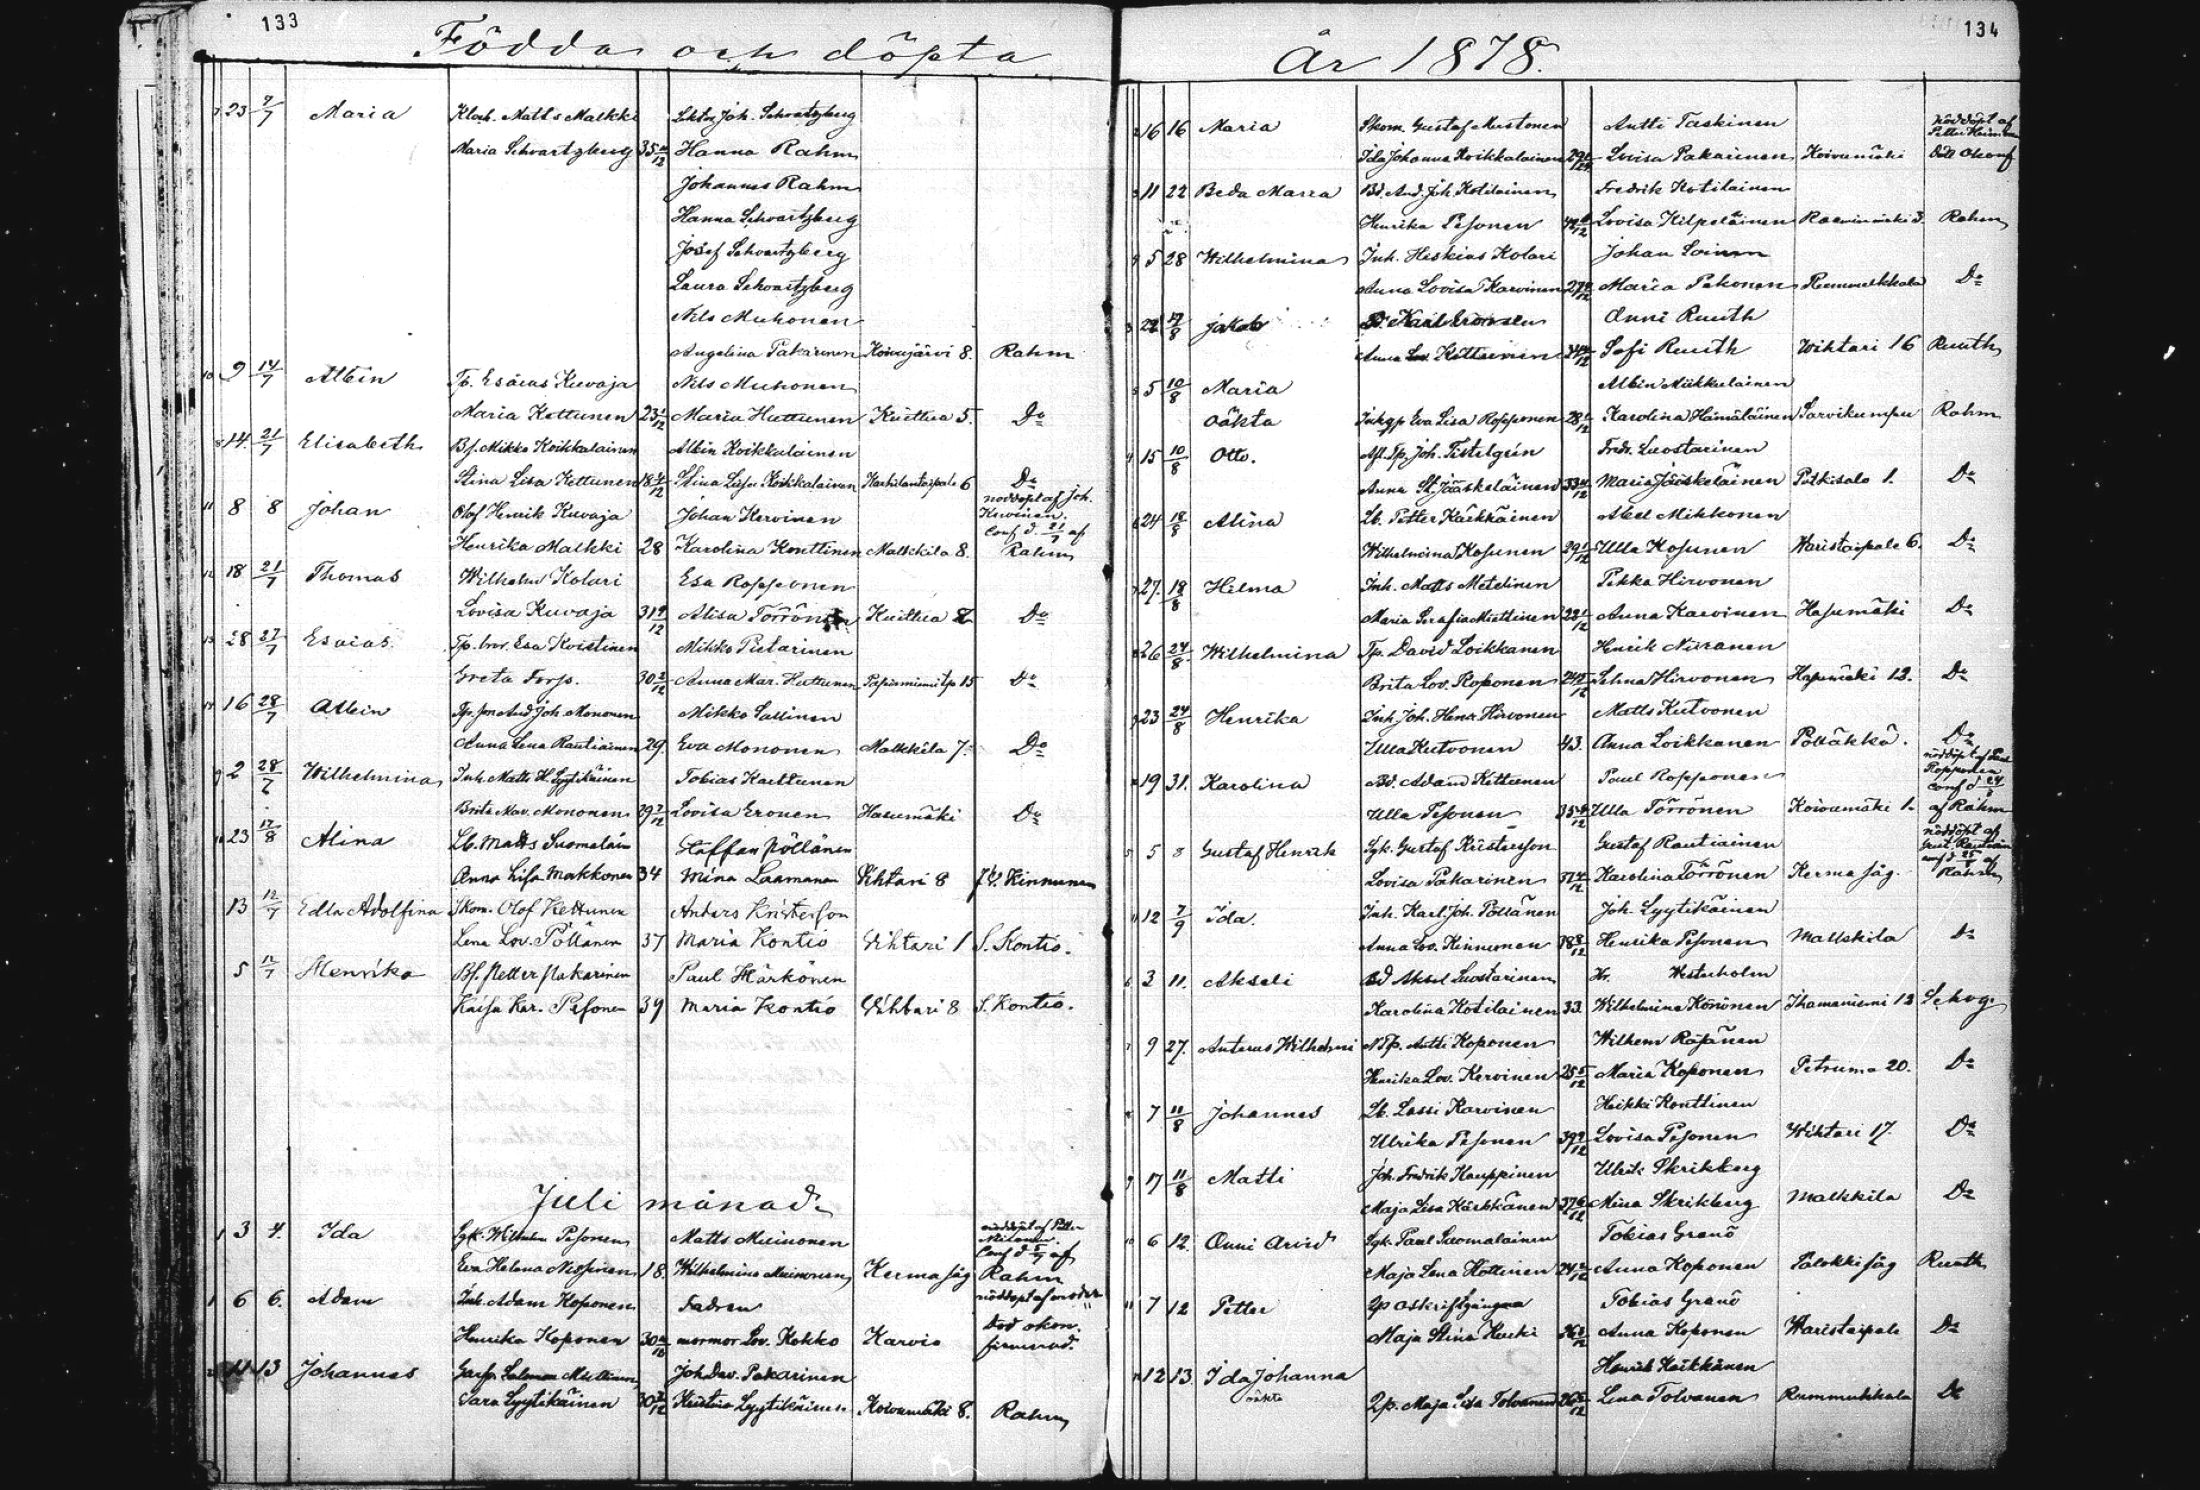 133
Födda och döpta
23 7/7 Maria Matts Malkki Joh. Schvartzberg
Maria Schvartzberg 35 Hanna Rahm
Johannes Rahm
Hanna Schvartzberg
Josef Schvartzberg
Laura Schvartzberg
Nils Muhonen
Angelina Pakarinen Koivujärvi 8. Rahm
10 9 14/7 Albin Tp. Esaias Kuvaja Nils Muhonen
Maria Kettunen 23 1/12 Maria Huttunen Kuittua 5. Do
14. 21/7 Elisabeth Bf. Mikko Koikkalainen Albin Koikkalainen
Stina Lisa Kettunen 18 Stina Lisa Koikkalainen 6 Do
11 8 8 Johan Olof Henrik Kuvaja Johan Kervinen nöddöpt af Joh. Kervinen. Conf d. 21/7 af
Henrika Malkki 28 Karolina Konttinen Malkkila 8. Rahm
12 18 21/7 Thomas Wilhelm Kolari Esa Ropponen
Lovisa Kuvaja 31 9/12 Alisa Törrönen Kuittua Do
13 28 27/7 Esaias Esa Koistinen Mikko Pietarinen
Greta Forss. 30 2/12 Anna Mar. Huttunen 15 Do
14 16 28/7 Albin Joh. Mononen Mikko Sallinen
Anna Lena Rautiainen 29. Eva Mononen Malkkila 7. Do
2 28/7 Wilhelmina Inh. Matts H. Lyytikäinen Tobias Karttunen
Brita Mar. Mononen 29 7/12 Lovisa Eronen Hasumäki Do
23 12/8 Alina Lb. Matts Suomalain Staffan Pöllänen
Anna Lisa Makkonen 34 Mina Laamanen Vihtari 8 Kinnunen
13 12/7 Edla Adolfina Skom. Olof Kettunen Anders Kristersson
Lena Lov. Pöllänen 37 Maria Kontio Vihtari 1 S. Kontio.
5 12/7 Henrika Bf. Petter Pakarinen Paul Härkönen
Kaisa Kar. Pesonen 39 Maria Kontio Vihtari 8 S. Kontio.
Juli månad
1 3 4. Ida Sgk. Wilhelm Pesonen Matts Muinonen nöddöpt af Petter
Conf d 5/7 af
Eva Helena Nissinen 18. Wilhelmina Muinonen Kerma såg Rahm
1 6 6. Adam Inh. Adam Koponen Fadren nöddöpt af
Henrika Koponen 30 mormor Lov. Kokko Karvio Död okon-firmerad.
2 11 13 Johannes Salomon Miettinen Joh. Dav. Pakarinen
Sara Lyytikäinen 30 7/12 Kristina Lyytikäinen Koivumäki 8. Rahm
134
År 1878.
2 16 16 Maria Skom. Gustaf Mustonen Antti Taskinen nöddöpt af Petter
Ida Johanna Koikkalainen 29 Lovisa Pakarinen Koivumäki Död Okonf
3 11 22 Beda Maria Bd. And. Joh. Kotilainen Fredrik Kotilainen
Henrika Pesonen 42 Lovisa Kilpeläinen 3. Rahm
4 5 28 Wilhelmina Inh. Heskias Kolari Johan Loinen
Anna Lovisa Karvinen 27 Maria Pekonen Rummukkala Do
3 22 17/8 Jakob Karl Eronen Onni Ruuth
Anna Lov. Kettunen 34 Sofi Ruuth Wihtari 16 Ruuth
5 5 10/8 Maria Albin Miikkulainen
Oäkta Eva Lisa Ropponen 28 Karolina Hämäläinen Sarvikumpu Rahm
4 15 10/8 Otto. Joh. Tistelgrén Fredr. Luostarinen
Anna St. Jääskeläinen 33 Maria Jääskeläinen Pitkisalo 1. Do
6 24 18/8 Alina Lb. Petter Kärkkäinen Abel Mikkonen
Wilhelmina Kosunen 29 Ulla Kosunen Waristaipale 6. Do
7 27. 18/8 Helma Inh. Matts Metelinen Pekka Hirvonen
Maria Serafia Miettinen 22 Anna Karvinen Hasumäki Do
8 26 24/8. Wilhelmina Tp. David Loikkanen Henrik Niiranen
Brita Lov. Koponen 24 Selma Hirvonen Hasumäki 12. Do
9 23 24/8 Henrika Inh. Joh. Henr. Hirvonen Matts Kutvonen
Ulla Kutvonen 43. Anna Loikkanen Pölläkkä. Do
10 19 31. Karolina Bd. Adam Kettunen Paul Ropponen nöddöpt af Paul Ropponen conf d 24/8
Ulla Pesonen 35 Ulla Törrönen Koivumäki 1. af Rahm
5 5 8 Gustaf Henrik Sgk. Gustaf Kristersson Gustaf Rautiainen nöddöpt af Gust. Rautiain conf d 25/8 af
Lovisa Pakarinen 37 4/12 Karolina Törrönen Kerma såg. Rahm
11 12 7/9 Ida. Inh. Karl Joh. Pöllänen Joh. Lyytikäinen
Anna Lov. Kinnunen 38 8/12 Henrika Pesonen Malkkila Do
6 3 11. Akseli Bd Aksel Luostarinen Hr. Westerholm
Karolina Kotilainen 33. Wilhelmina Könönen Ihamaniemi 13 Schvg.
7 9 27. Anterus Wilhelmi Antti Koponen Wilhem Räsänen
Henrika Lov. Kervinen 25 5/12 Maria Koponen Petruma 20. Do
8 7 11/8 Johannes Lb. Lassi Karvinen Heikki Konttinen
Ulrika Pesonen 39 9/12 Lovisa Pesonen Wihtari 17. Do
9 17 11/8 Matti Joh. Fredrik Kauppinen Ulrik Skrikberg
Maja Lisa Kärkkänen 37 6/12 Mina Skrikberg Malkkila Do
10 6 12. Onni Arvid Sgk. Paul Suomalainen Tobias Granö
Maja Lena Hottinen 24 Anna Koponen Palokki såg Ruuth
11 7 12 Petter Tobias Granö
Maja Stina Huuki 36 Anna Koponen Waristaipale Do
12 13. Ida Johanna Henrik Kaikkänen
oäkta Qp. Maja Lisa Tolvanen 26 Lena Tolvanen Rummukkala Do